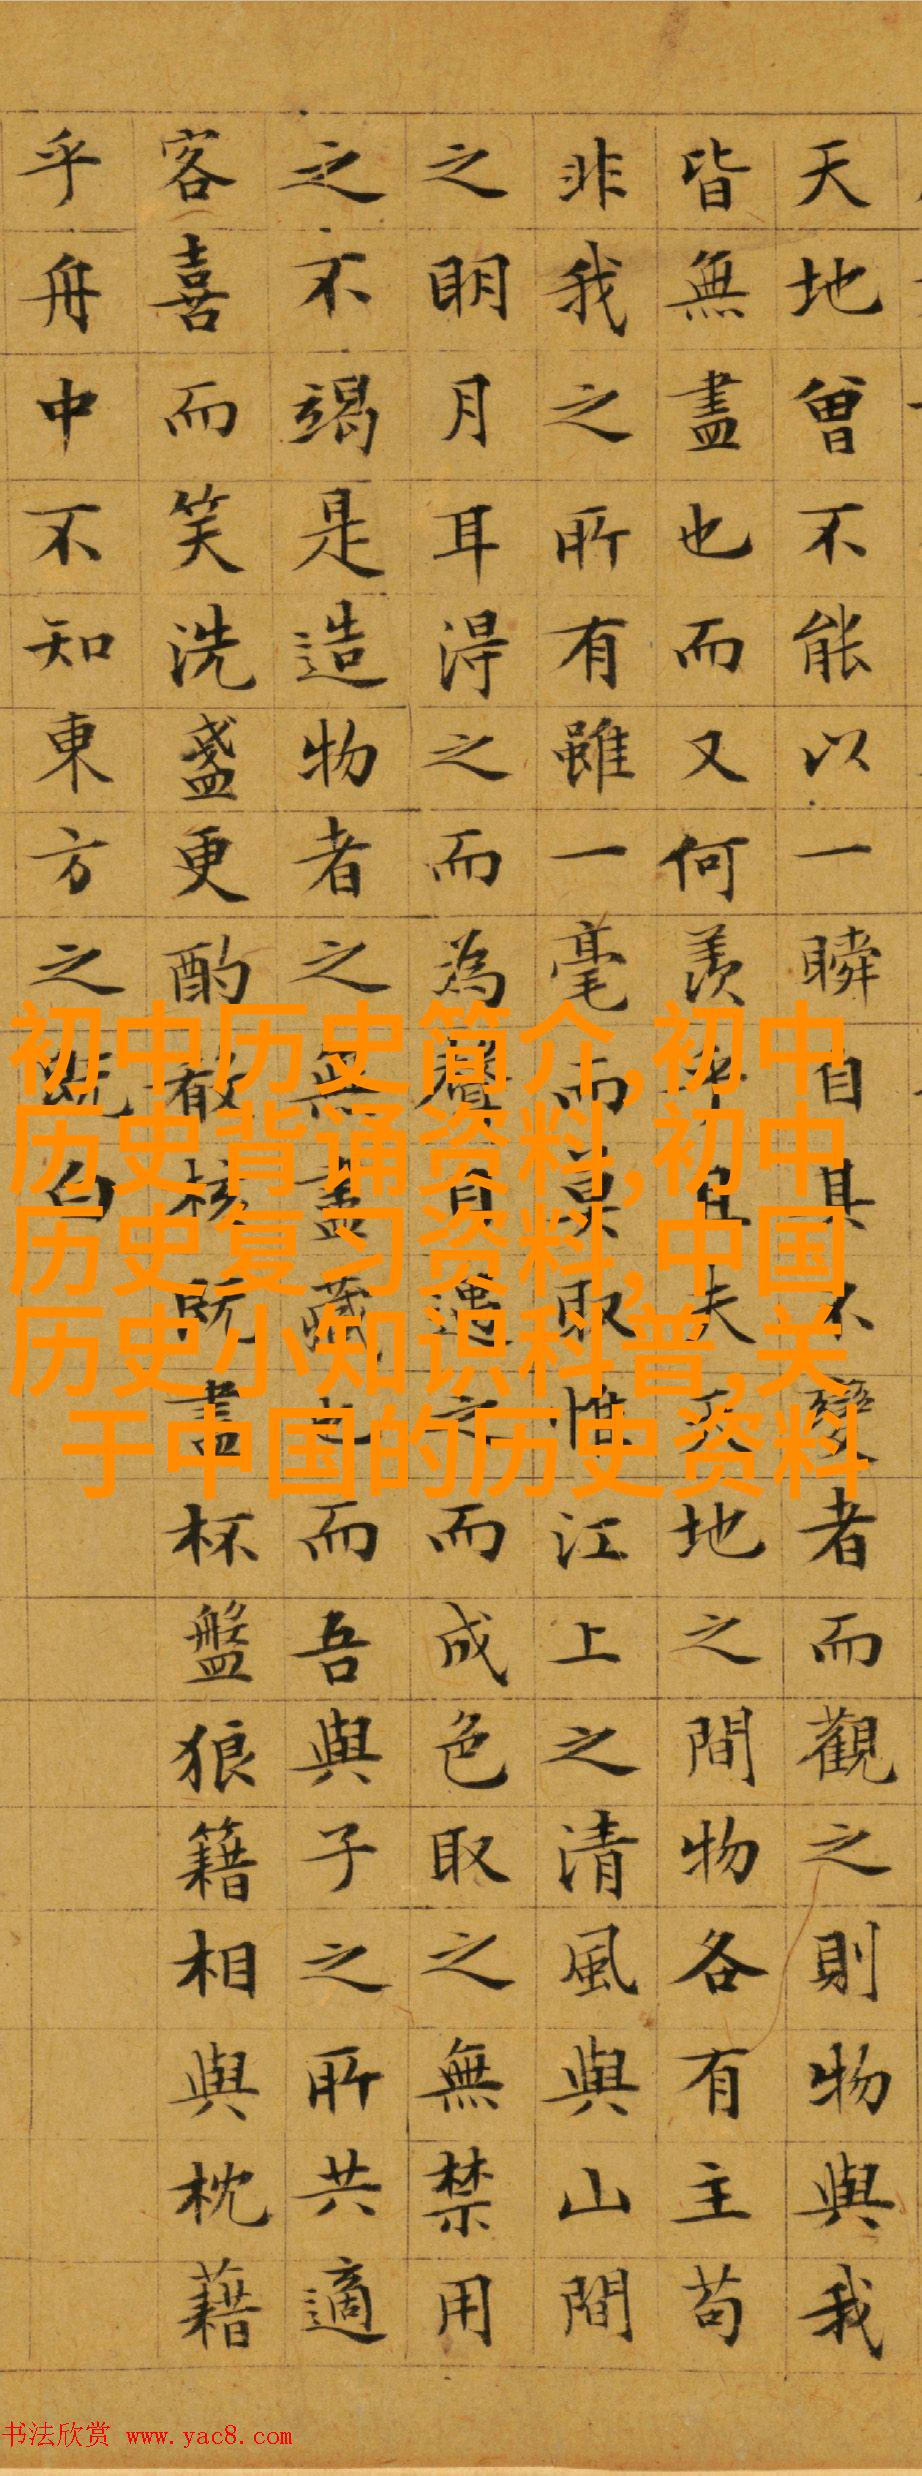 天地曾不能以一瞬自其不變者而觀之則物與我
皆無盡也而又何羨乎且夫天地之間物各有主苟
非我之所有雖一毫而莫取惟江上之清風與山間
之眀月耳得之而為聲目遇之而成色取之無禁用
之不竭是造物者之無盡藏也而吾與子之所共適
客喜而笑洗盞更酌殽核既盡杯盤狼籍相與枕藉
乎舟中不知東方之既白
初中历史简介,初中
历史背诵资料,初中
历史复习资料,中国
历史小知识科普,关
于中国的历史资料
书法欣赏 www.yac8.com